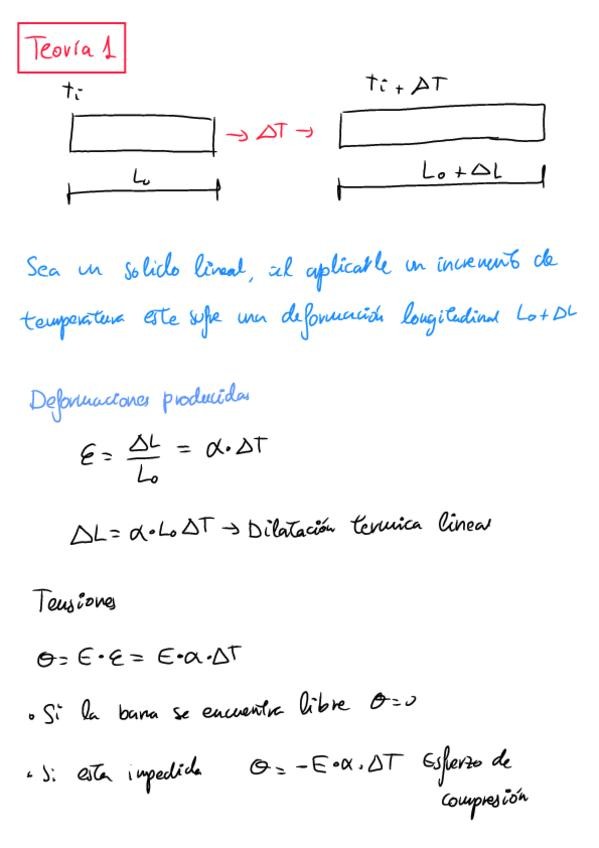 Teoría 1
ti
ti + ΔT
→ ΔT →
L₀
L₀ + ΔL
Sea un solido lineal, al aplicarle un incremento de
temperatura este sufre una deformación longitudinal L₀+ΔL
Deformaciones producidas
ε = ΔL/L₀ = α·ΔT
ΔL = α·L₀ ΔT → Dilatación termica lineal
Tensiones
σ = E·ε = E·α·ΔT
• Si la barra se encuentra libre σ=0
• Si esta impedida σ = -E·α·ΔT Esfuerzo de
compresión